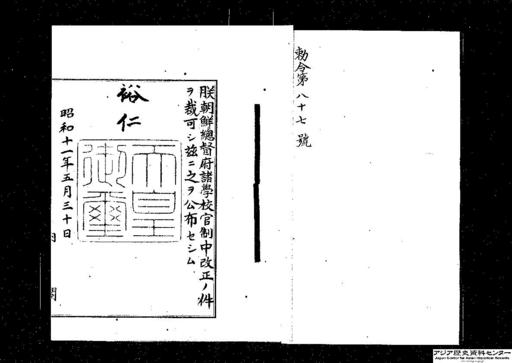 勅令第八十七號
朕朝鮮總督府諸學校官制中改正ノ件
ヲ裁可シ茲ニ之ヲ公布セシム
裕仁
天皇御璽
昭和十一年五月三十日
アジア歴史資料センター
Japan Center for Asian Historical Records